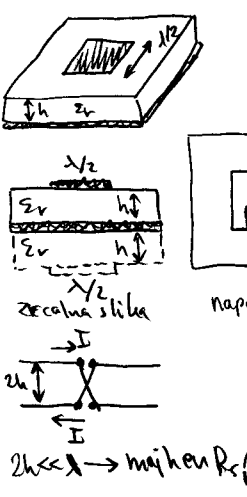 λ/2
h εr
λ/2
εr h
εr h
λ/2
zrcalna slika
nap
I
2h
I
2h<<λ → majhen Rs